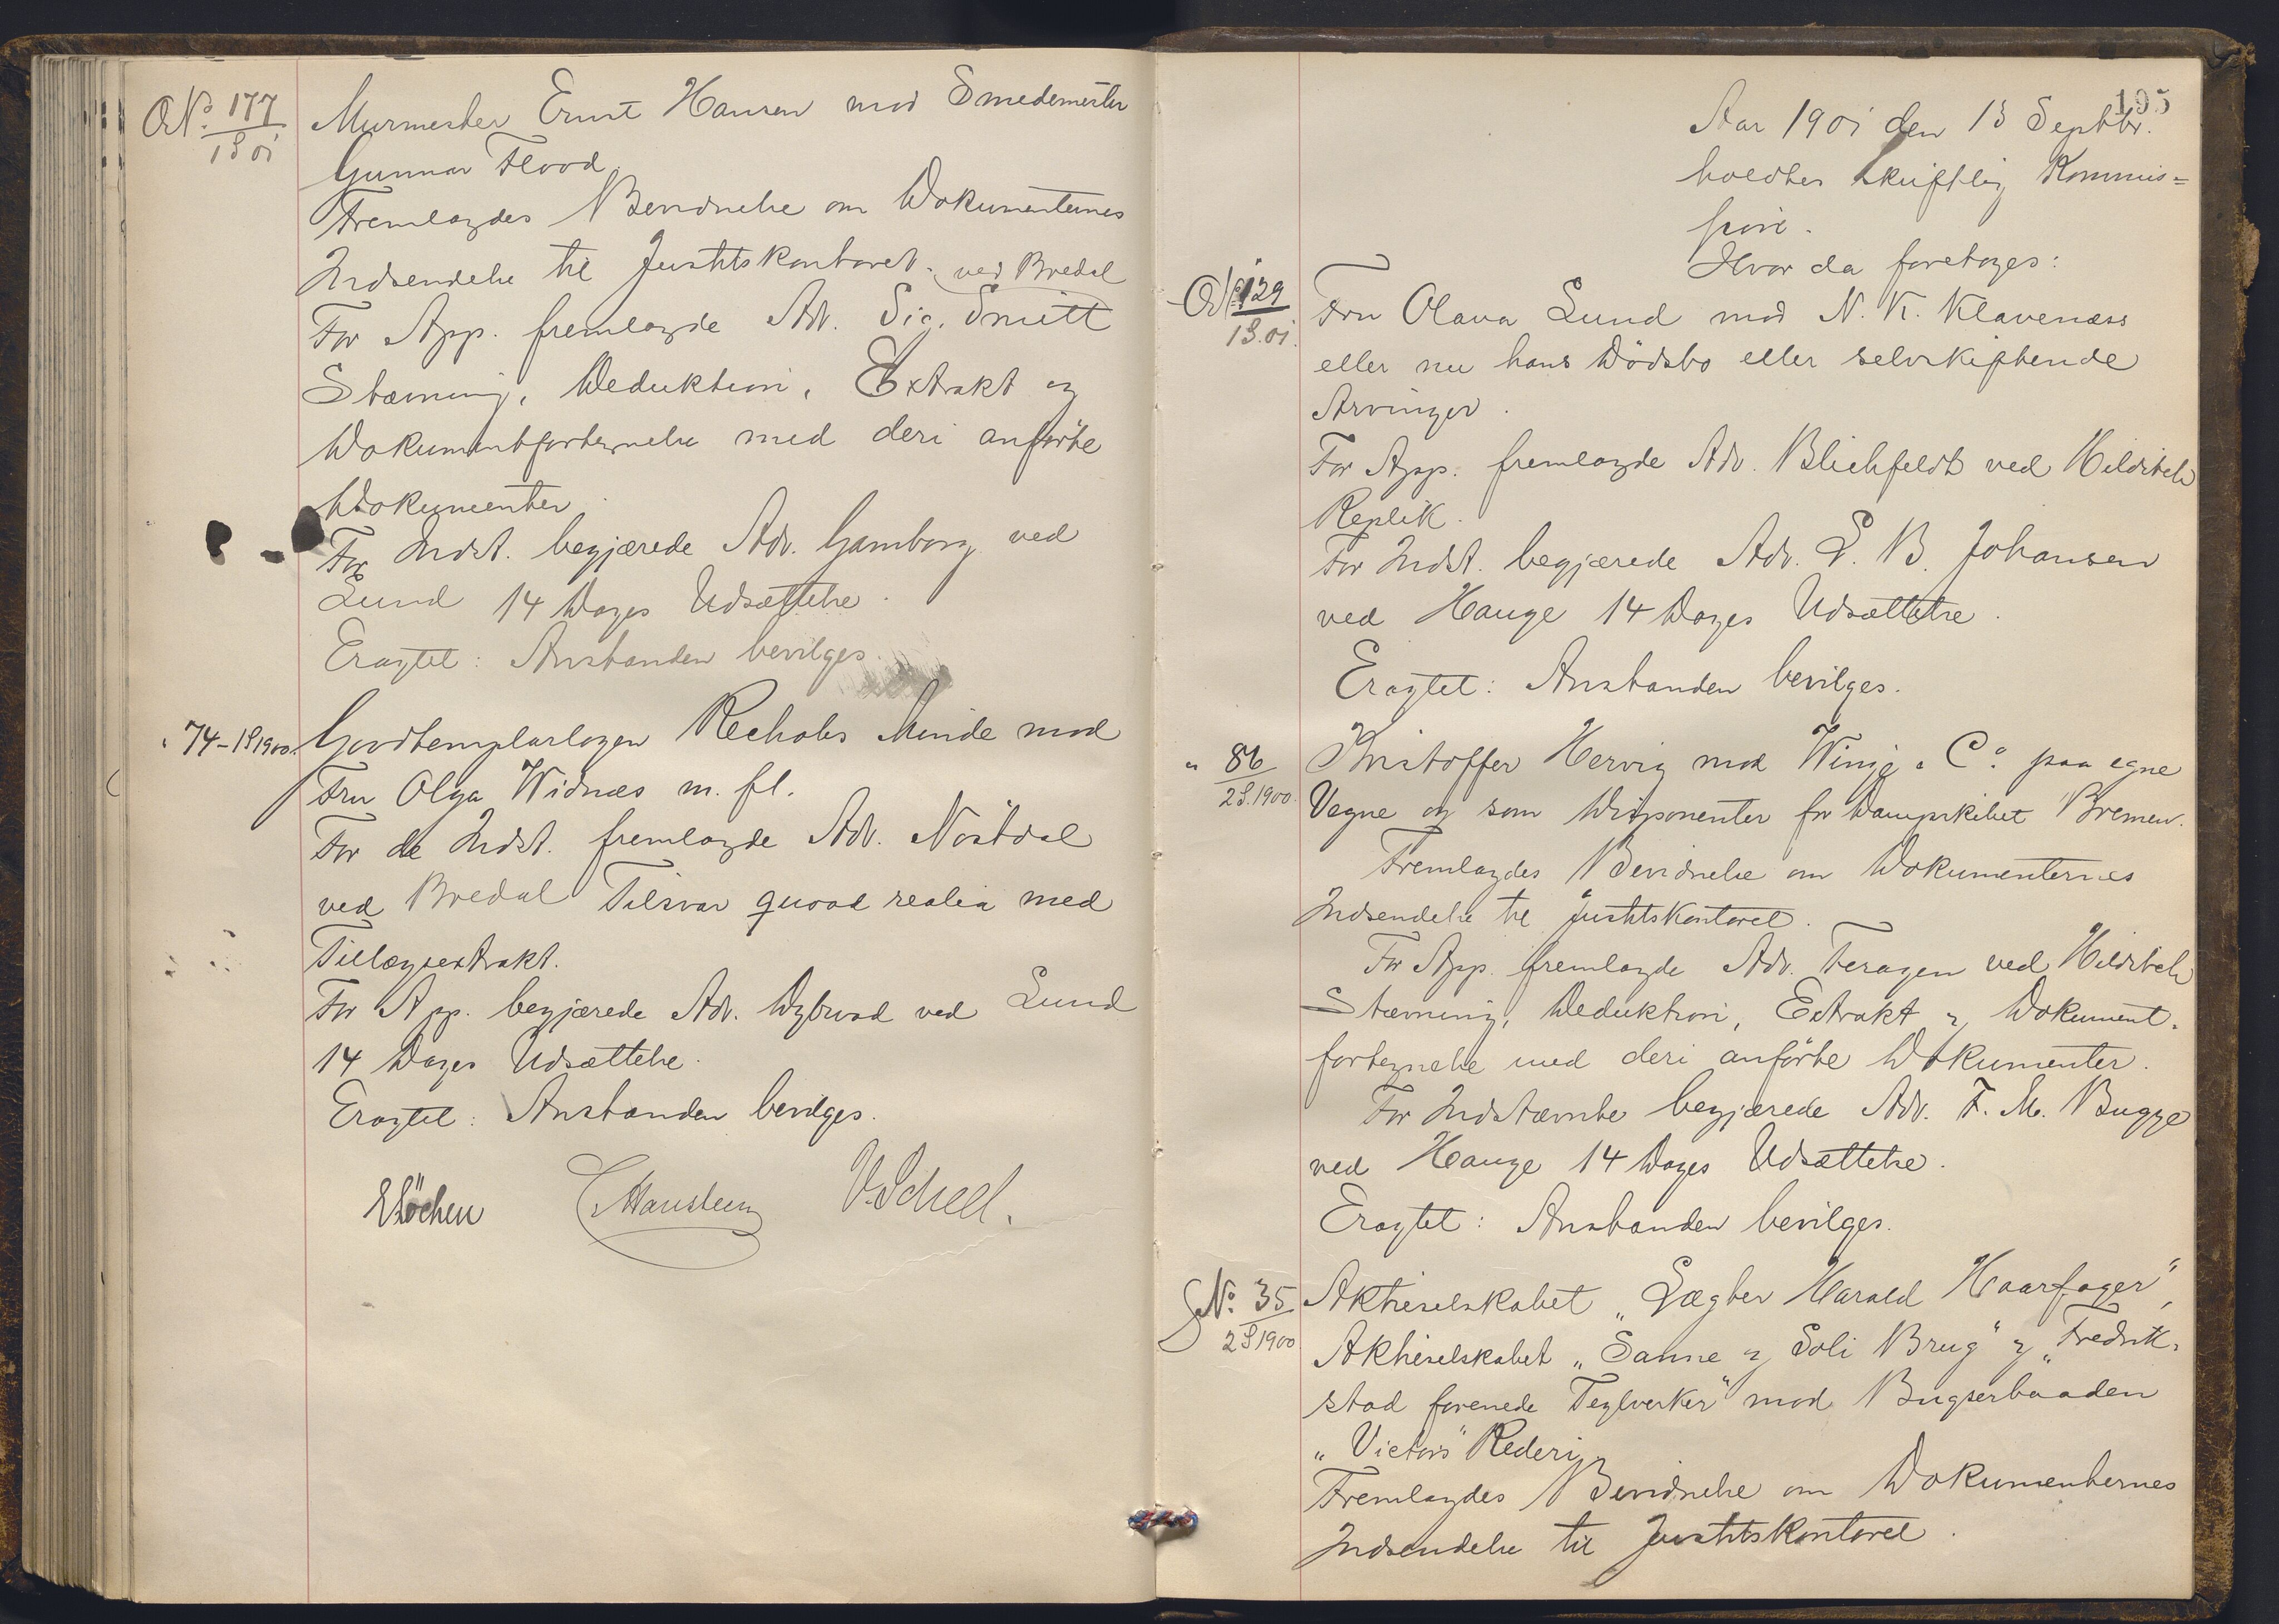 O.No. 177
1S 01
Murmester Ernst Hansen mod Smedemester
Gunnar Flood
Fremlagdes Bevidnelse om Dokumenternes
Indsendelse til Justitskontoret. ved Bredal
For App. fremlagde Adv. Sig. Smitt
Stævning, Deduktion, Extrakt og
Dokumentfortegnelse med deri anførte
Dokumenter.
For Indst. begjærede Adv. Gamborg ved
Lund 14 Dages Udsættelse.
Eragtet: Anstanden bevilges.
" 74 - 1S 1900.
Goodtemplarlogen Rechabs Minde mod
Fru Olga Widnæs m. fl.
For de Indst. fremlagde Adv. Nöstdal
ved Bredal Tilsvar quoad realia med
Tillægsextrakt.
For App. begjærede Adv. Dybwad ved Lund
14 Dages Udsættelse.
Eragtet: Anstanden bevilges.
E Löchen C Hansteen V. Scheel.
195
Aar 1901 den 13 Septbr.
holdtes skriftlig Kommis=
sion.
Hvor da foretoges:
O.No. 129
1S. 01.
Fru Olava Lund mod N. K. Klavenæss
eller nu hans Dödsbo eller selvskiftende
Arvinger.
For App. fremlagde Adv. Blichfeldt ved Hilditch
Replik.
For Indst. begjærede Adv. L. B. Johansen
ved Hauge 14 Dages Udsættelse.
Eragtet: Anstanden bevilges.
" 86
2S. 1900.
Kristoffer Hervig mod Winge & Co. paa egne
Vegne og som Disponenter for Dampskibet Bremen.
Fremlagdes Bevidnelse om Dokumenternes
Indsendelse til Justitskontoret.
For App. fremlagde Adv. Feragen ved Hilditch
Stævning, Deduktion, Extrakt og Dokument-
fortegnelse med deri anførte Dokumenter.
For Indstævnte begjærede Adv. F. M. Bugge
ved Hauge 14 Dages Udsættelse.
Eragtet: Anstanden bevilges.
S No. 35
2S 1900
Aktieselskabet "Lægter Harald Haarfager",
Aktieselskabet "Sanne og Soli Brug" og "Fredrik-
stad forenede Teglverker" mod Bugserbaaden
"Victors" Rederi
Fremlagdes Bevidnelse om Dokumenternes
Indsendelse til Justitskontoret.